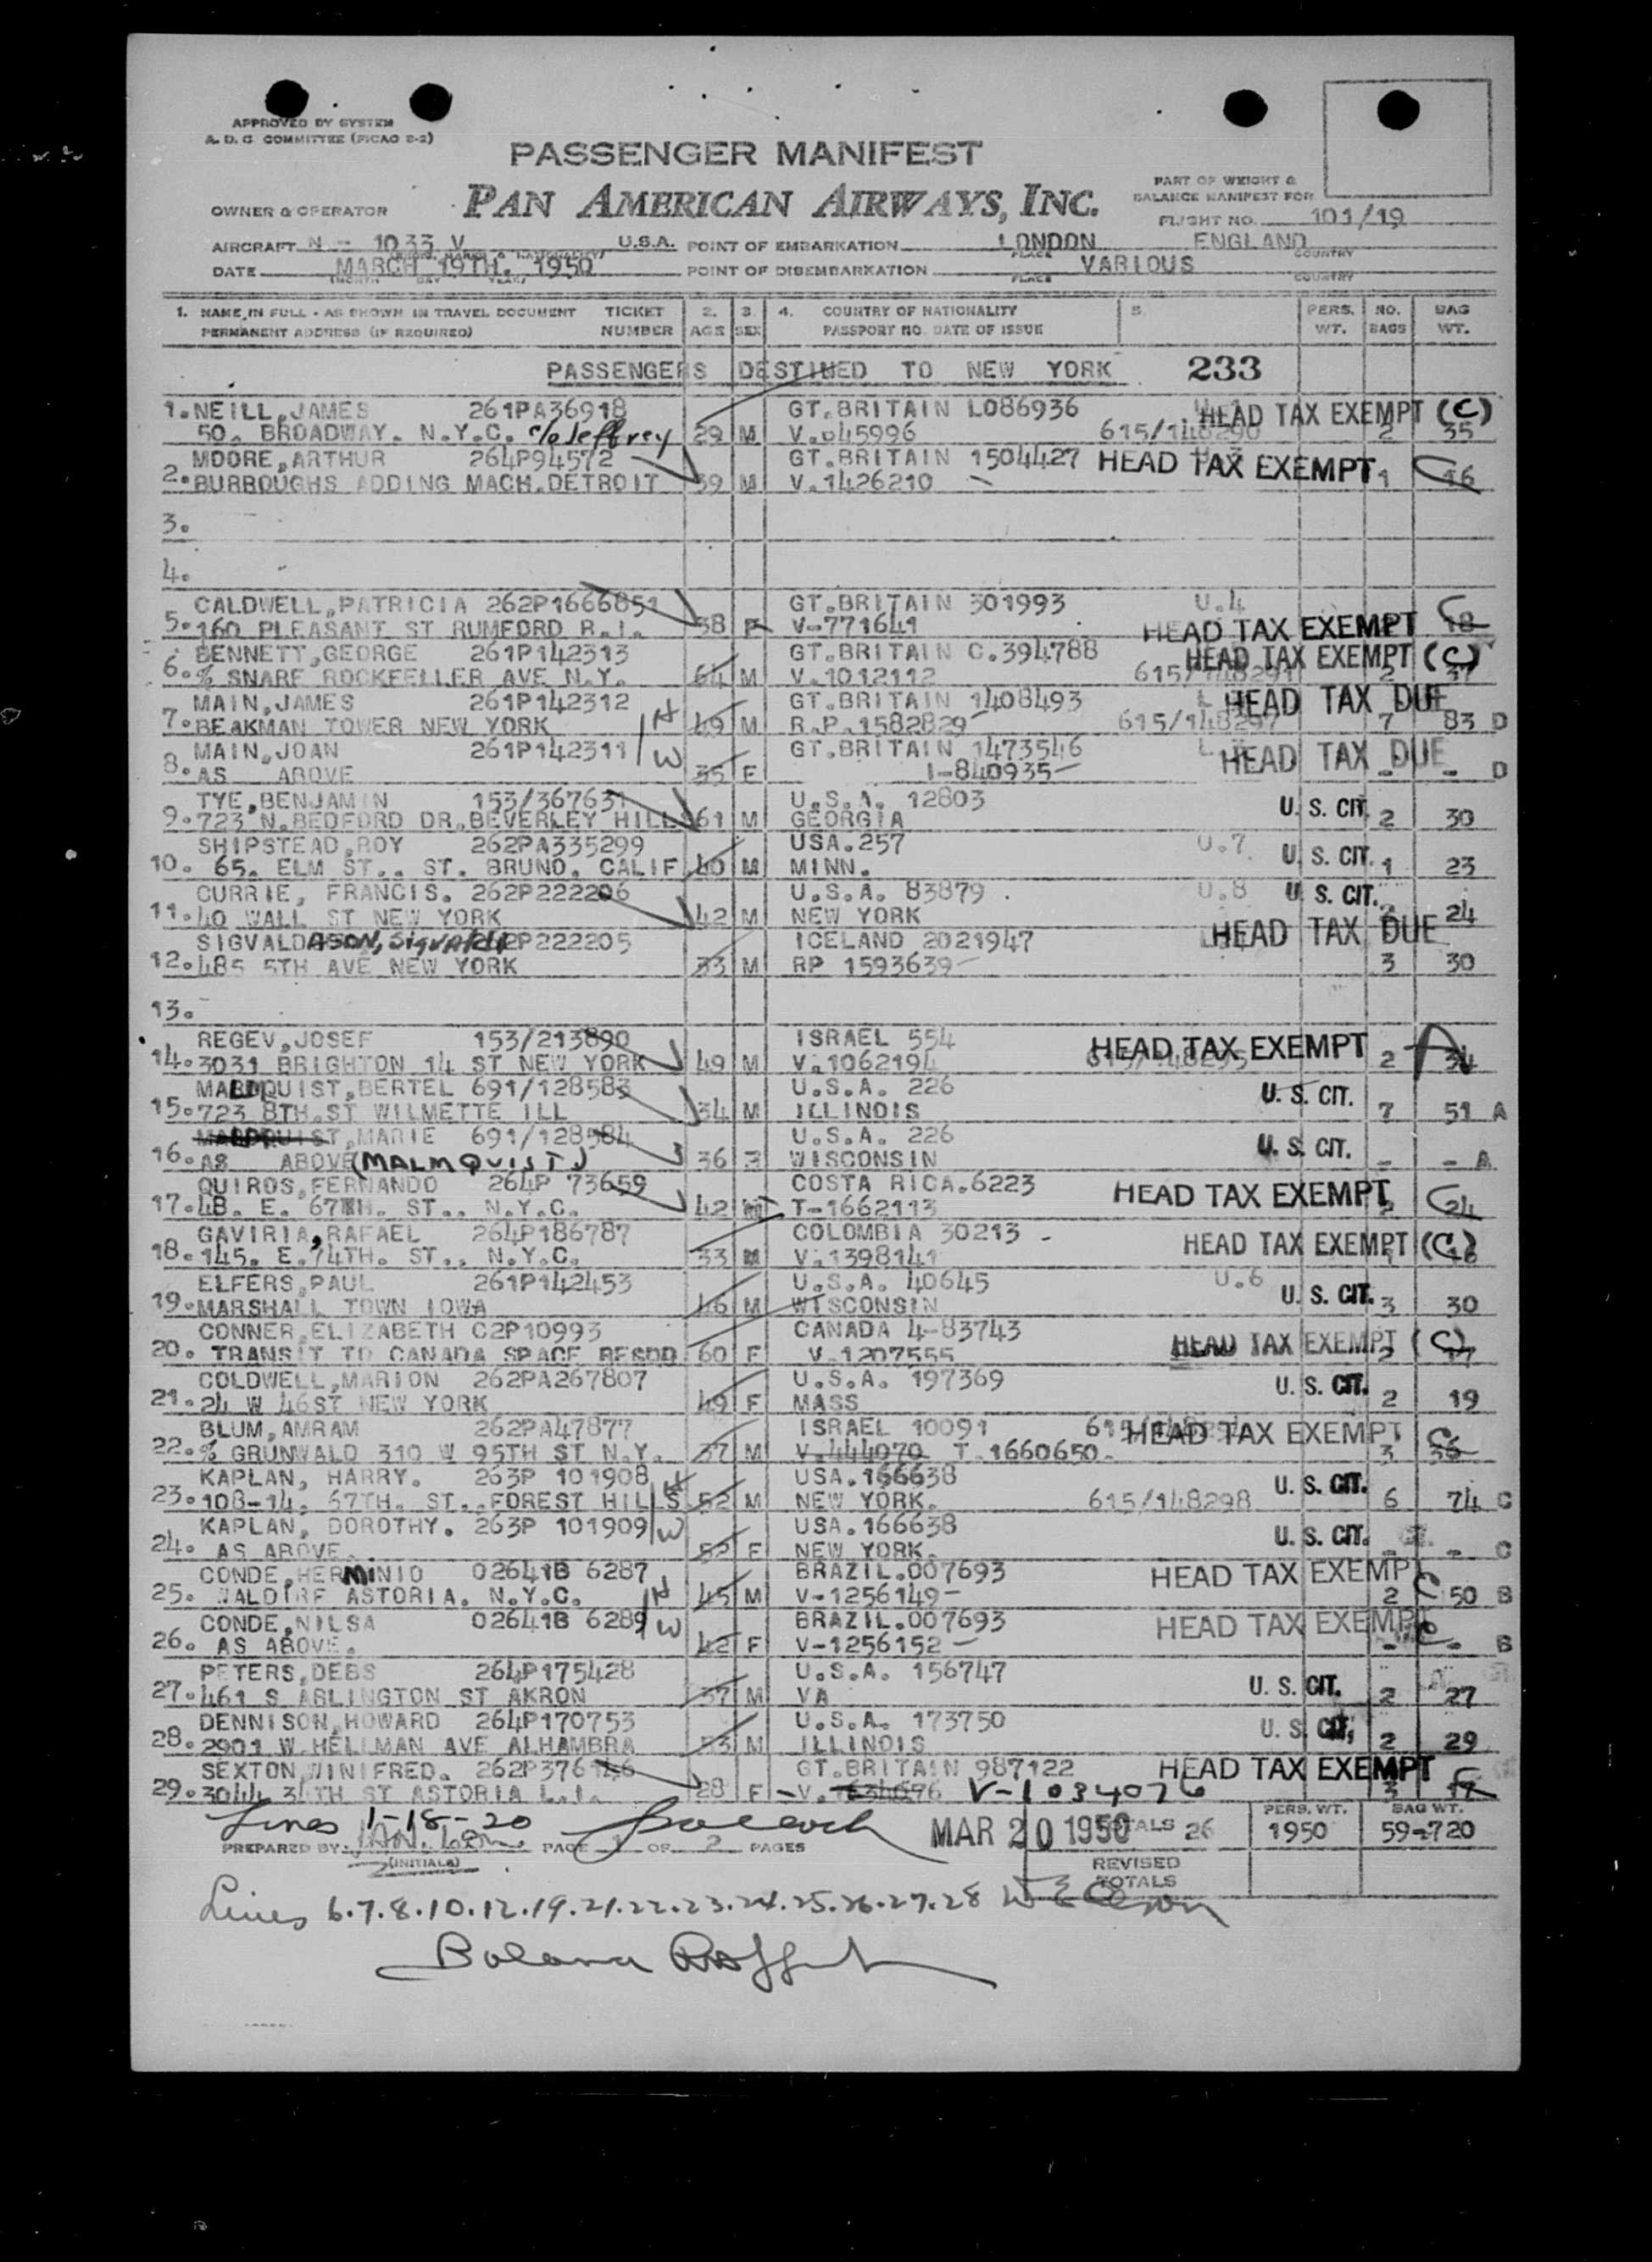 APPROVED BY SYSTEM
A. D. C. COMMITTEE (PICAO E-2)
PASSENGER MANIFEST
PAN AMERICAN AIRWAYS, INC.
PART OF WEIGHT &
BALANCE MANIFEST FOR
OWNER & OPERATOR
FLIGHT NO. 101/19
AIRCRAFT N - 1033 V U.S.A. POINT OF EMBARKATION LONDON ENGLAND
PLACE COUNTRY
DATE MARCH 19TH. 1950 POINT OF DISEMBARKATION VARIOUS
(MONTH DAY YEAR) PLACE COUNTRY
1. NAME IN FULL - AS SHOWN IN TRAVEL DOCUMENT TICKET 2. 3. 4. COUNTRY OF NATIONALITY 5. PERS. NO. BAG
PERMANENT ADDRESS (IF REQUIRED) NUMBER AGE SEX PASSPORT NO. DATE OF ISSUE WT. BAGS WT.
PASSENGERS DESTINED TO NEW YORK 233
1. NEILL, JAMES 261PA36918 GT.BRITAIN L086936 HEAD TAX EXEMPT (C)
50. BROADWAY. N.Y.C. c/o Jeffrey 29 M V.045996 615/148290 2 35
MOORE, ARTHUR 264P94572 GT.BRITAIN 1504427 HEAD TAX EXEMPT
2. BURROUGHS ADDING MACH.DETROIT 39 M V.1426210 1 16
3.
4.
CALDWELL, PATRICIA 262P1666851 GT.BRITAIN 301993 U.4
5. 160 PLEASANT ST RUMFORD R.I. 38 F V-771641 HEAD TAX EXEMPT 18
BENNETT, GEORGE 261P142313 GT.BRITAIN C.394788 HEAD TAX EXEMPT (C)
6. % SNARE ROCKFELLER AVE N.Y. 64 M V.1012112 615/148291 2 37
MAIN, JAMES 261P142312 H GT.BRITAIN 1408493 HEAD TAX DUE
7. BEAKMAN TOWER NEW YORK 49 M R.P.1582829 615/148297 7 83 D
MAIN, JOAN 261P142311 W GT.BRITAIN 1473546 HEAD TAX DUE
8. AS ABOVE 35 F I-840935 - - D
TYE, BENJAMIN 153/367631 U.S.A. 12803 U. S. CIT.
9. 723 N.BEDFORD DR.BEVERLEY HILLS 61 M GEORGIA 2 30
SHIPSTEAD, ROY 262PA335299 USA.257 U.7 U. S. CIT.
10. 65. ELM ST.. ST. BRUNO. CALIF 40 M MINN. 1 23
CURRIE, FRANCIS. 262P222206 U.S.A. 83879 U.8 U. S. CIT.
11. 40 WALL ST NEW YORK 42 M NEW YORK 24
SIGVALDASON, Sigvaldi 262P222205 ICELAND 2021947 HEAD TAX DUE
12. 485 5TH AVE NEW YORK 33 M RP 1593639 3 30
13.
REGEV, JOSEF 153/213890 ISRAEL 554 HEAD TAX EXEMPT A
14. 3031 BRIGHTON 14 ST NEW YORK 49 M V.1062194 2 34
QUIST, BERTEL 691/128583 U.S.A. 226 U. S. CIT.
15. 723 8TH.ST WILMETTE ILL 34 M ILLINOIS 7 51 A
MARIE 691/128584 U.S.A. 226 U. S. CIT.
16. AS ABOVE (MALMQUIST) 36 WISCONSIN - - A
QUIROS, FERNANDO 264P 73659 COSTA RICA.6223 HEAD TAX EXEMPT
17. 48. E. 67TH. ST.. N.Y.C. 42 M T-1662113 2 24
GAVIRIA, RAFAEL 264P186787 COLOMBIA 30213 HEAD TAX EXEMPT (C)
18. 145. E.74TH. ST.. N.Y.C. 33 M V.1398141 1
ELFERS, PAUL 261P142453 U.S.A. 40645 U.6
19. MARSHALL TOWN IOWA 46 M WISCONSIN U. S. CIT. 3 30
CONNER, ELIZABETH C2P10993 CANADA 4-83743 HEAD TAX EXEMPT (C)
20. TRANSIT TO CANADA SPACE RESDD 60 F V.1207555 2
COLDWELL, MARION 262PA267807 U.S.A. 197369 U. S. CIT.
21. 24 W 46ST NEW YORK 49 F MASS 2 19
BLUM, AMRAM 262PA47877 ISRAEL 10091 HEAD TAX EXEMPT
22. % GRUNWALD 310 W 95TH ST N.Y. 37 M V.444070 T.1660650. 3 36
KAPLAN, HARRY. 263P 101908 H USA.166638 U. S. CIT.
23. 108-14. 67TH. ST..FOREST HILLS 52 M NEW YORK. 615/148298 6 74 C
KAPLAN, DOROTHY. 263P 101909 W USA.166638 U. S. CIT.
24. AS ABOVE. 52 F NEW YORK. - - C
CONDE, HERMINIO 02641B 6287 H BRAZIL.007693 HEAD TAX EXEMPT
25. WALDIRF ASTORIA. N.Y.C. 45 M V-1256149 2 50 B
CONDE, NILSA 02641B 6289 W BRAZIL.007693 HEAD TAX EXEMPT
26. AS ABOVE. 42 F V-1256152 - - B
PETERS, DEBS 264P175428 U.S.A. 156747 U. S. CIT.
27. 461 S ARLINGTON ST AKRON 37 M VA 2 27
DENNISON, HOWARD 264P170753 U.S.A. 173750 U. S. CIT.
28. 2901 W.HELLMAN AVE ALHAMBRA 53 M ILLINOIS 2 29
SEXTON, WINIFRED. GT.BRITAIN 987122 HEAD TAX EXEMPT
29. 3044 34TH ST ASTORIA L.I. 28 F V. V-1034076 3 17
Lines 1-18-20 MAR 20 1950 TOTALS 26 PERS. WT. 1950 BAG WT. 59-720
PREPARED BY (INITIALS) PAGE 1 OF 2 PAGES
REVISED TOTALS
Lines 6.7.8.10.12.19.21.22.23.24.25.26.27.28